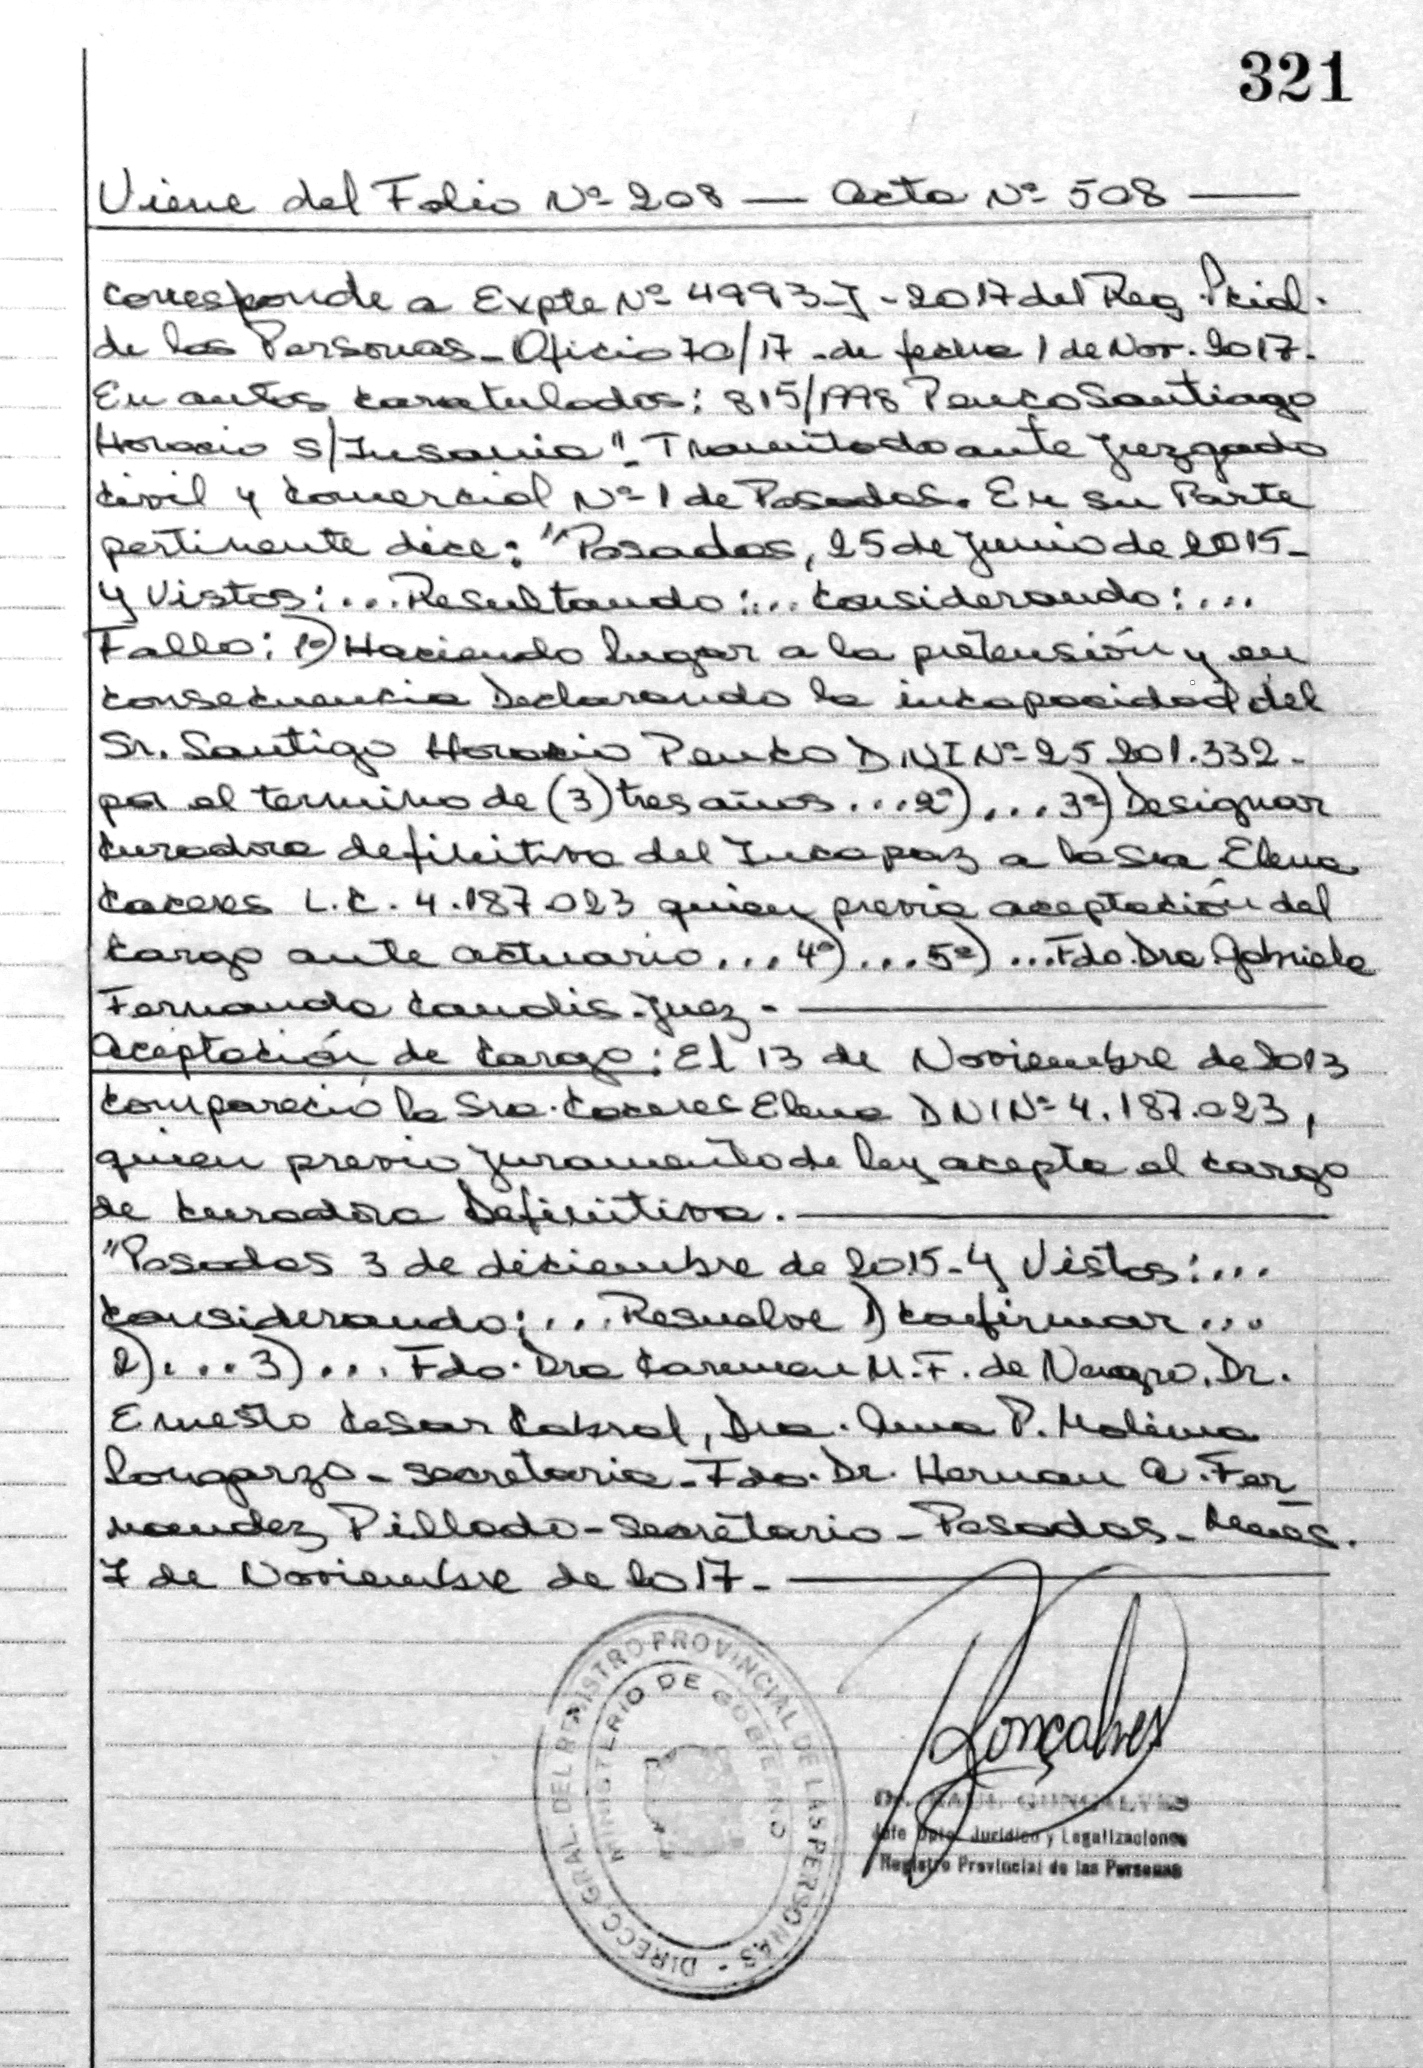 321
Viene del Folio Nº 208 — Acta Nº 508 —
corresponde a Expte Nº 4993-J-2017 del Reg. Pcial.
de las Personas - Oficio 70/17 - de fecha 1 de Nov. 2017.
En autos caratulados: 815/1998 Penco Santiago
Horacio S/Insania". Tramitado ante Juzgado
Civil y Comercial Nº 1 de Posadas. En su Parte
pertinente dice: "Posadas, 25 de Junio de 2015-
y Vistos:... Resultando:... Considerando:...
Fallo: 1º) Haciendo lugar a la pretensión y en
consecuencia Declarando la incapacidad del
Sr. Santigo Horacio Penco DNI Nº 25.201.332-
por el termino de (3) tres años ...2º)...3º) Designar
Curadora definitiva del Incapaz a la Sra Elena
Caceres L.C. 4.187.023 quien previa aceptación del
Cargo ante actuario ... 4º)...5º) ...Fdo. Dra Gabriela
Fernanda Canalis - Juez - —
Aceptación de Cargo: El 13 de Noviembre de 2013
compareció la Sra. Caceres Elena DNI Nº 4.187.023,
quien previo juramento de ley acepta el cargo
de Curadora Definitiva. —
"Posadas 3 de diciembre de 2015-Y Vistos:...
Considerando:... Resuelve 1) Confirmar ...
2)...3)... Fdo. Dra Carmen M.F. de Dr.
Ernesto Cesar Cabral, Dra. Ana P. Molina
Longarzo - secretaria - Fdo. Dr. Hernan A. Fer
nandez Pillado - secretario - Posadas -
7 de Noviembre de 2017- —
DIRECC. GRAL. DEL REGISTRO PROVINCIAL DE LAS PERSONAS -
MINISTERIO DE GOBIERNO
Gonçalves
Dr. RAUL GONCALVES
Jefe Dpto. Jurídico y Legalizaciones
Registro Provincial de las Personas